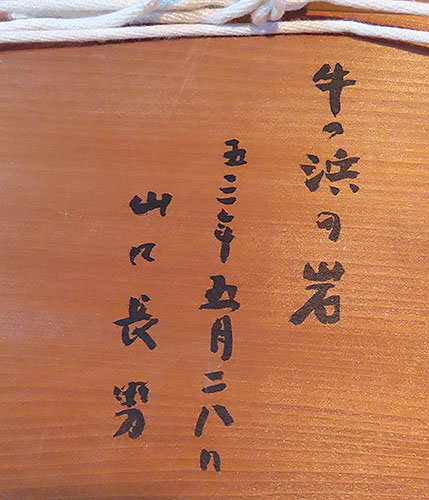 牛の浜の岩
五三年五月二八日
山口長男